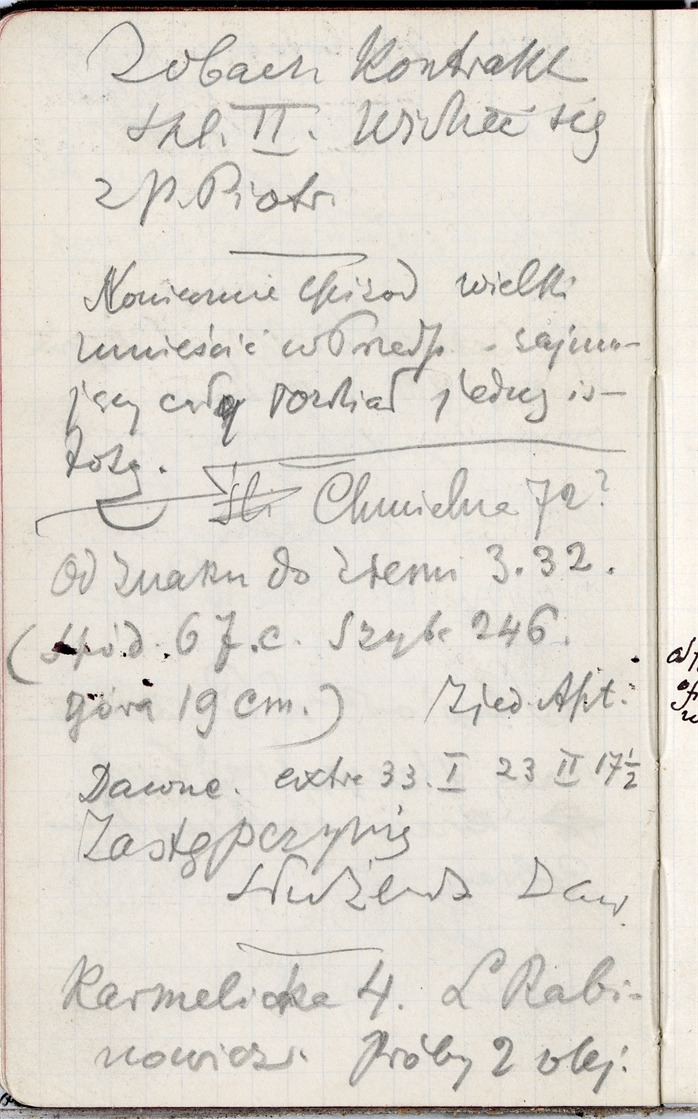 Zobacz Kontrakt
skł. II. Widzieć się
z p. Piotr.
Koniecznie epizod wielki
umieścić w Przedp. - zajmu-
jący cały rozdział jedną is-
totą.
Chmielna 72?
Od znaku do 3.32.
(spód. 67.c. Szyb. 246.
góra 19 cm.) Zjed. Apt.
Dawne. extra 33. I 23 II 17½
Zastępczynię
Daw.
Karmelicka 4. L Rabi-
nowicz. Próby 2 olej.